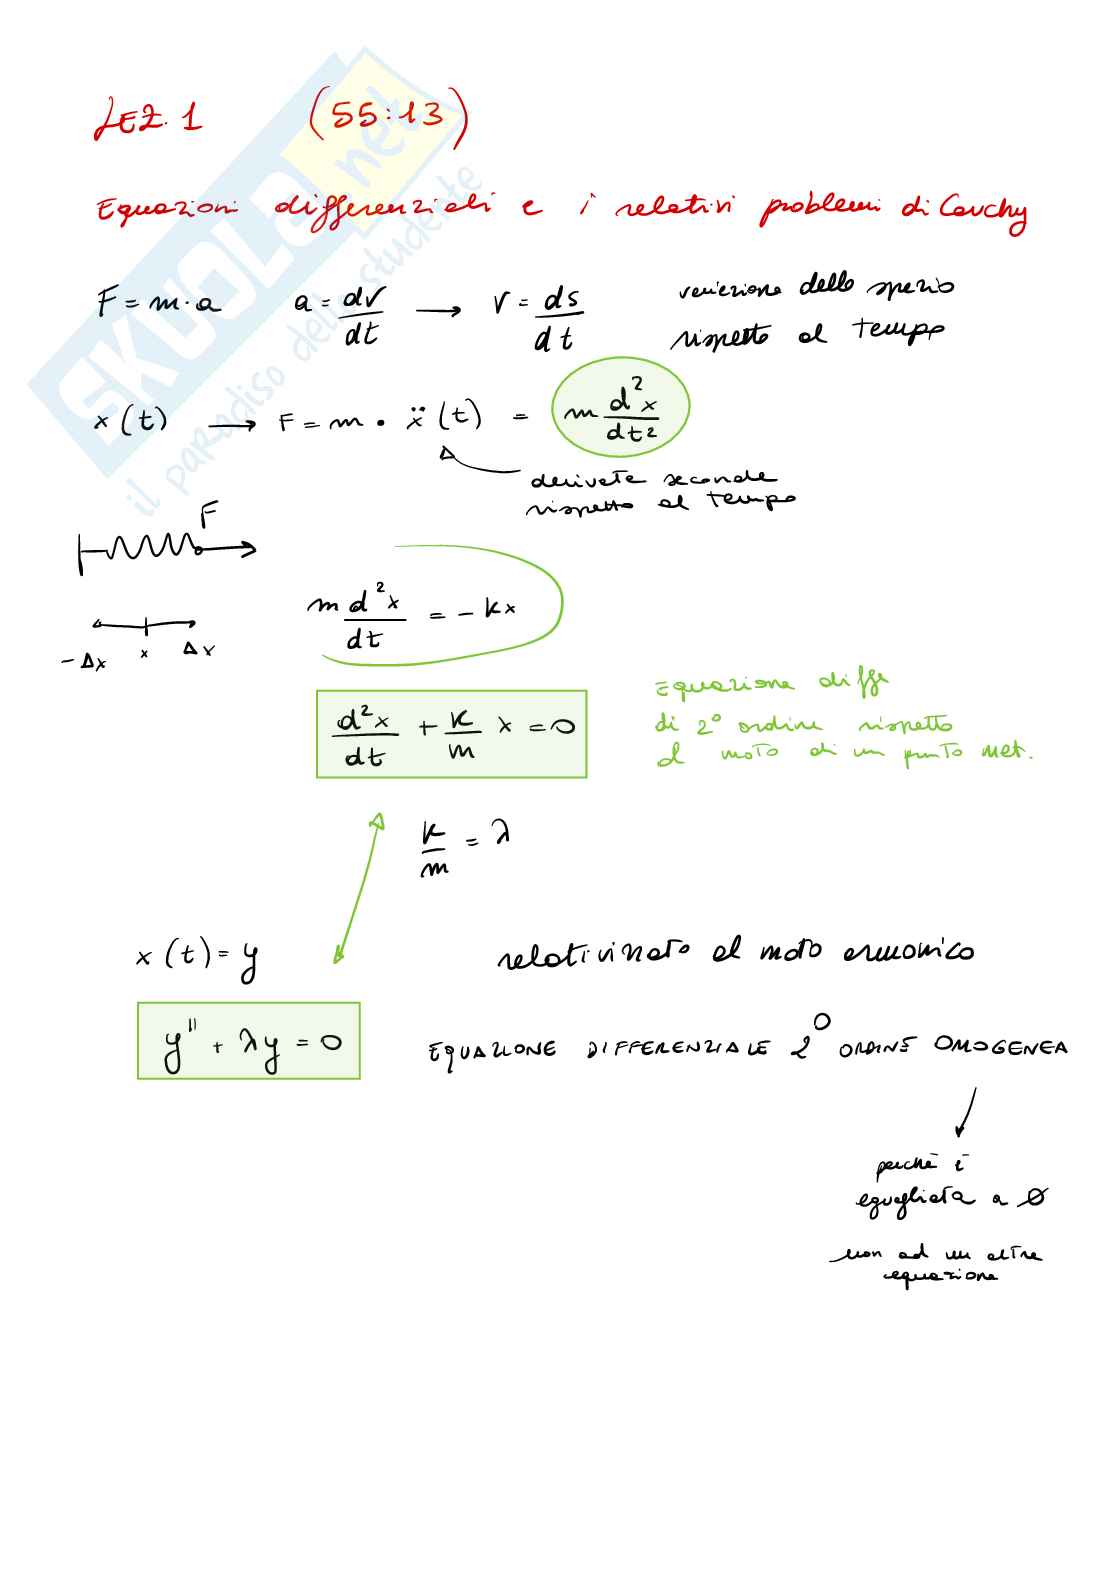 LEZ. 1 (55:13)
Equazioni differenziali e i relativi problemi di Cauchy
F = m · a a = dv/dt → v = ds/dt variazione dello spazio
rispetto al tempo
x(t) → F = m · ẍ(t) = m d²x/dt²
derivata seconda
rispetto al tempo
F
m d²x/dt = - kx
-Δx x Δx
d²x/dt + k/m x = 0
Equazione diffe
di 2° ordine rispetto
al moto di un punto mat.
k/m = λ
x(t) = y relativizzato al moto armonico
y'' + λy = 0 EQUAZIONE DIFFERENZIALE 2° ORDINE OMOGENEA
perchè è
eguagliata a Ø
non ad un altra
equazione
SKUOLA.net
il paradiso dello studente